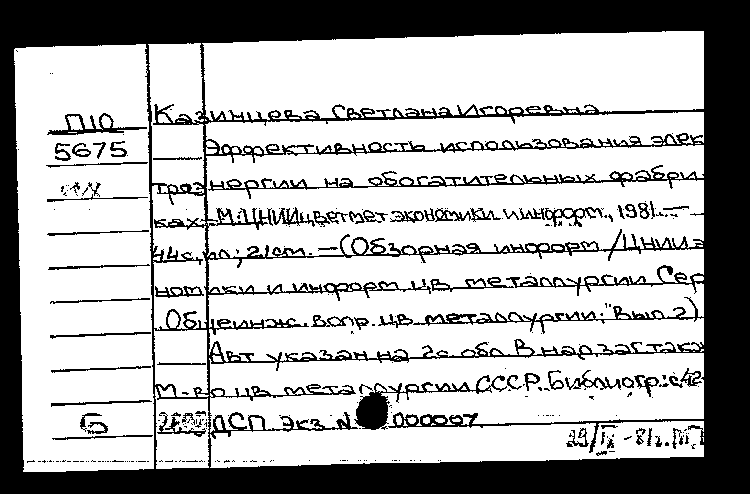 П10
Казинцева, Светлана Игоревна
5675
Эффективность использования элек
троэнергии на обогатительных фабри
ках.- М.: ЦНИИцветмет экономики и информ., 1981.—
44с., ил.; 21см. —(Обзорная информ./ЦНИИ э
номики и информ. цв. металлургии. Сер.
.Общеинж. вопр. цв. металлургии; Вып 2)
Авт указан на 2с. обл. В надзаг. так
М-во цв. металлургии СССР. Библиогр.: с.42-
Б
ДСП. Экз. N 000007